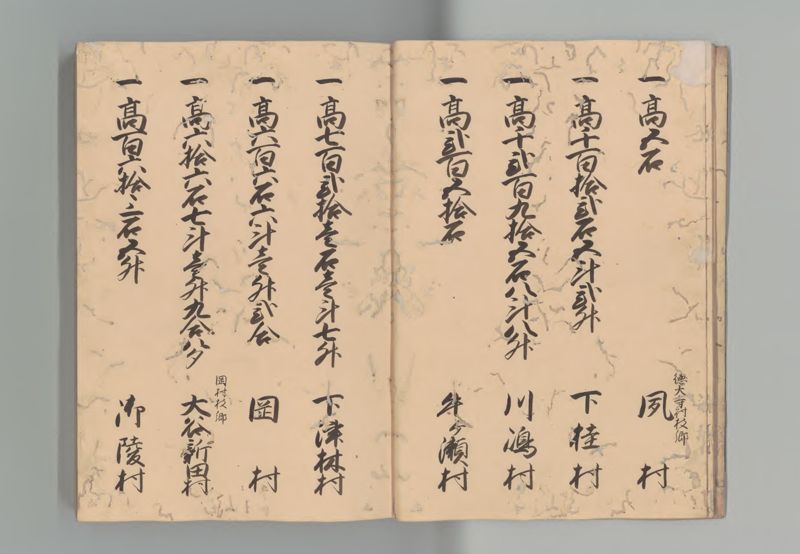 一 高五石 徳大寺村枝郷 夙村
一 高千百拾弐石五斗弐升 下桂村
一 高千弐百九拾五石八斗八升 川嶋村
一 高弐百五拾石 牛ケ瀬村
一 高七百弐拾壱石壱斗七升 下津林村
一 高六百六石六斗壱升弐合 岡村
一 高六拾六石七斗壱升九合八夕 岡村枝郷 大谷新田村
一 高百六拾三石五升 御陵村